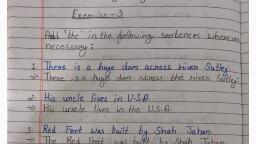 Exercise-3
Add "the" in the following sentences wherever
necessary:
1. There is a huge dam across river Sutlej.
⇒ There is a huge dam across the river Sutlej.
2. His uncle lives in U.S.A.
⇒ His uncle lives in the U.S.A.
3. Red Foot was built by Shah Jahan.
⇒ The Red Foot was built by Shah Jahan.